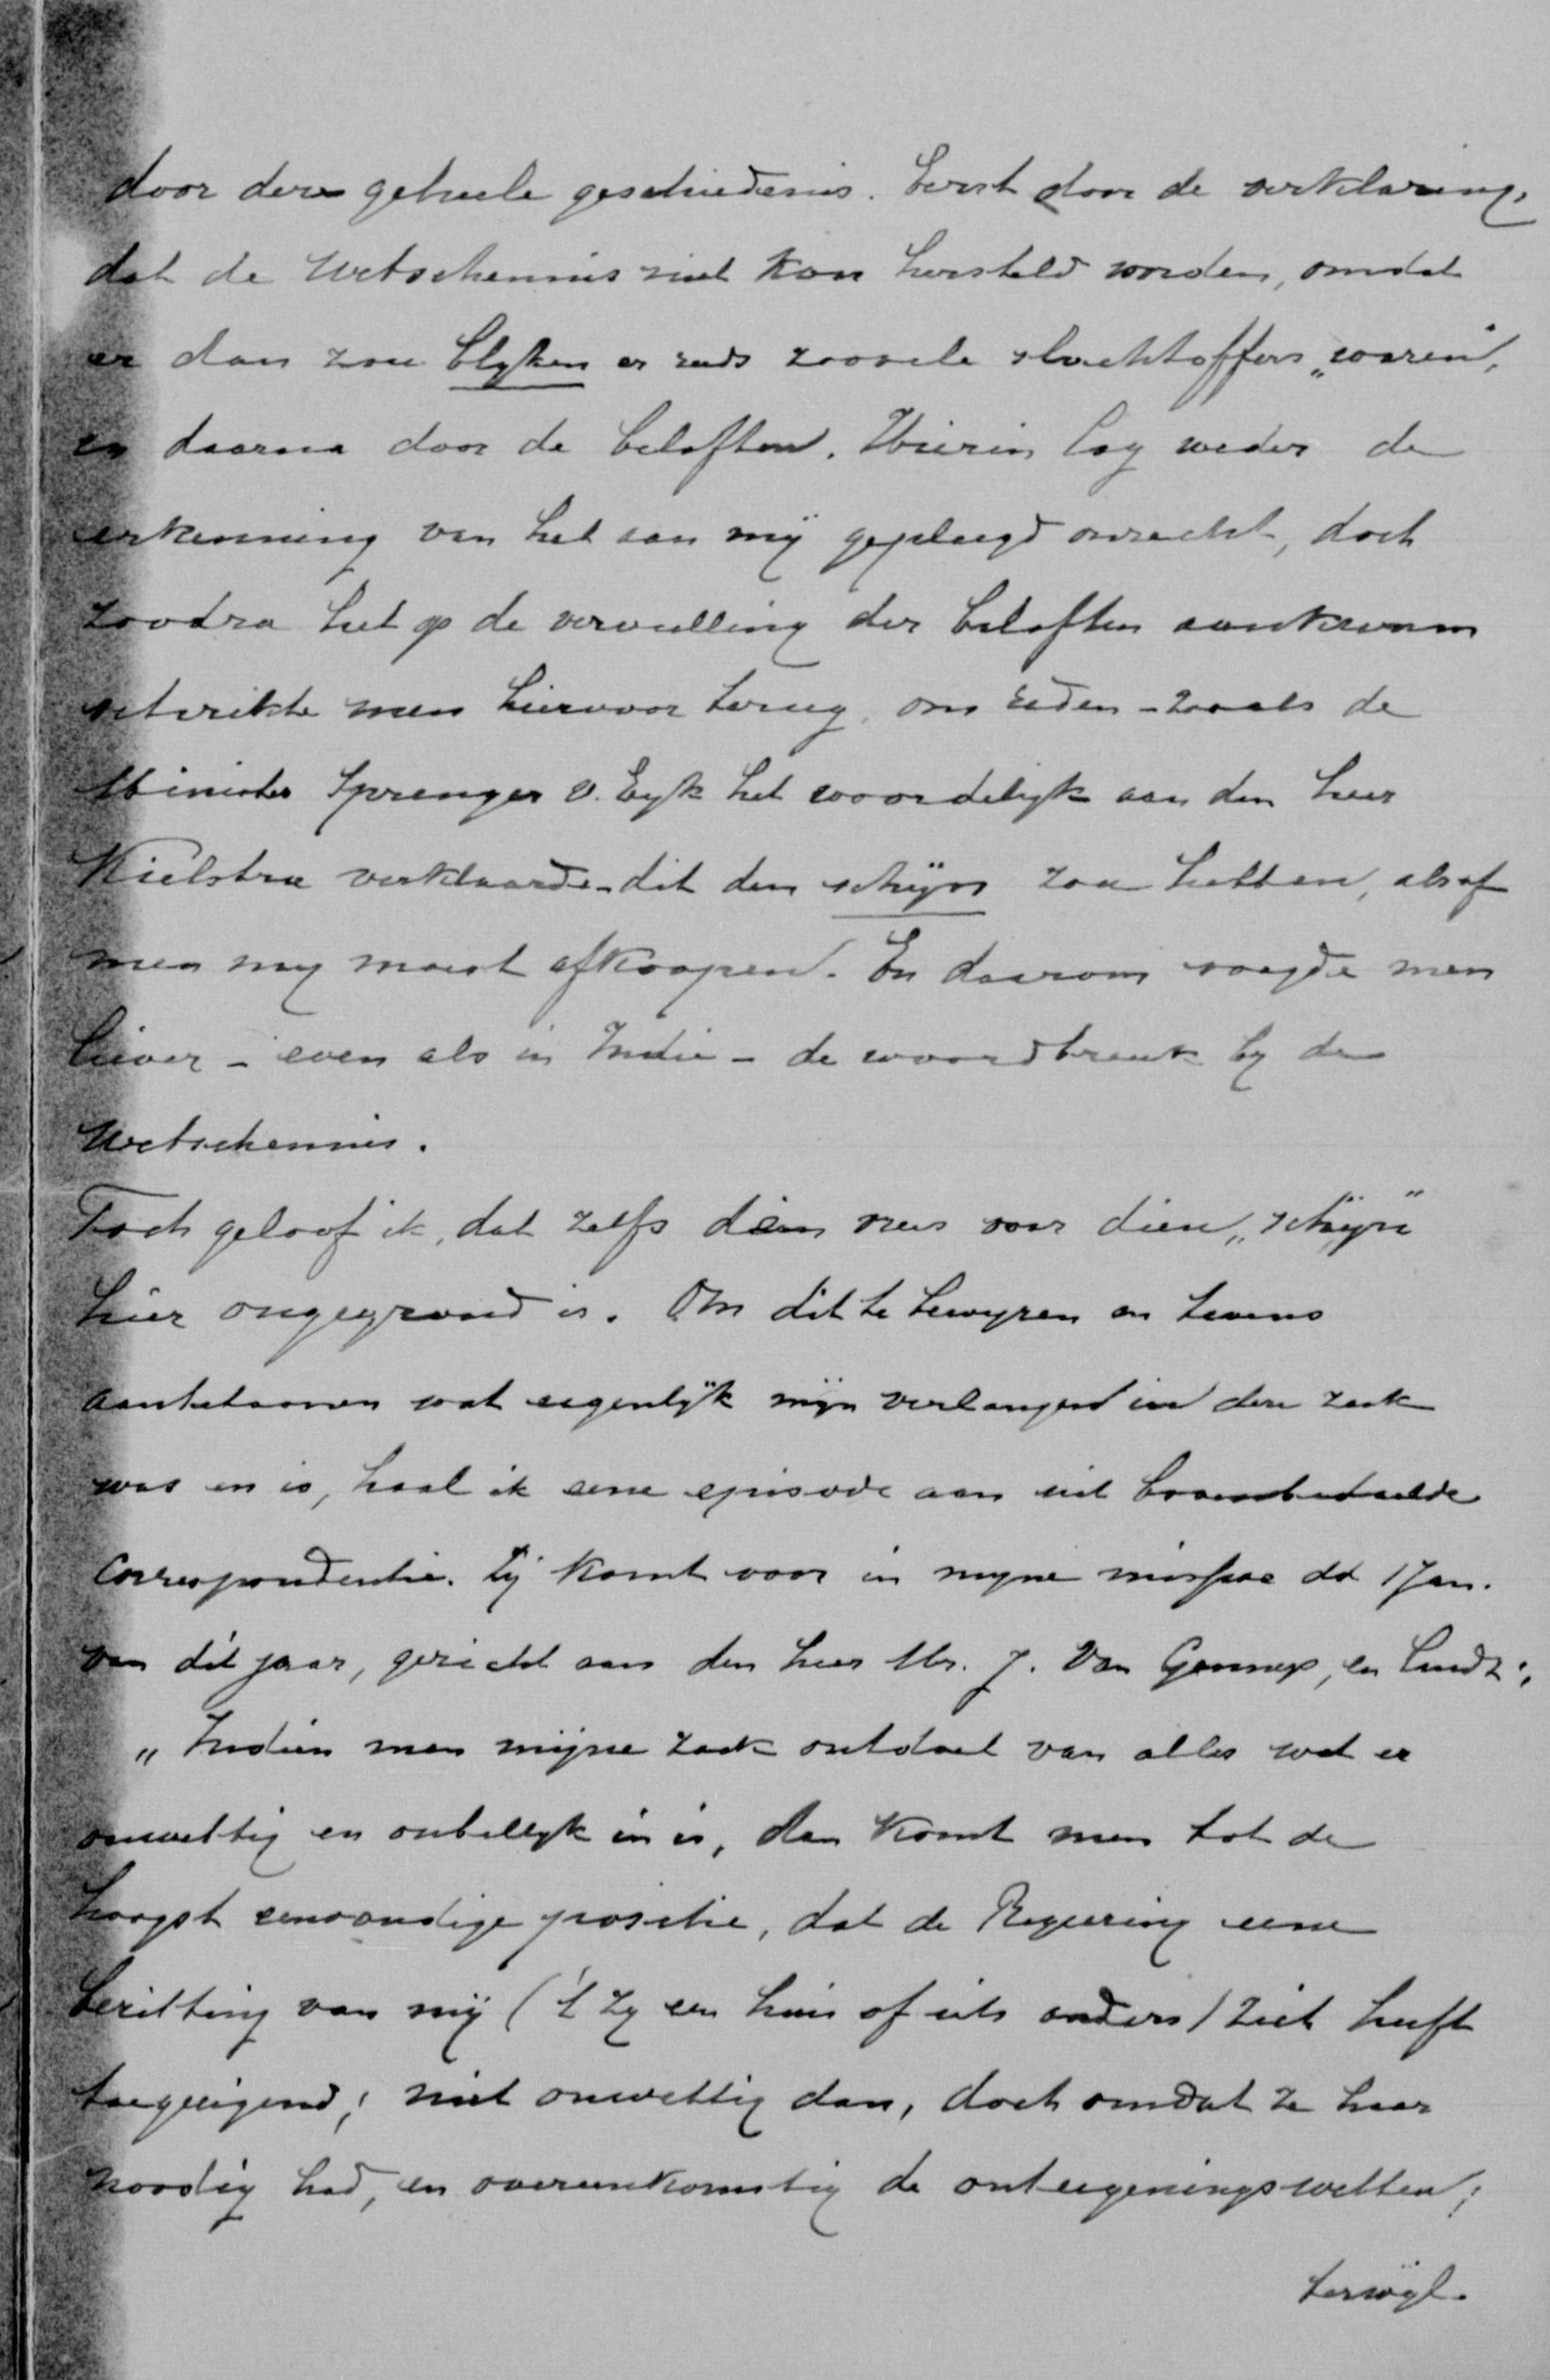 door deze geheele geschiedenis. Eerst door de verklaring,
dat de Wetschennis niet kon hersteld worden, omdat
er dan zou blyken er reeds zoovele slachtoffers „waren",
en daarna door de beloften. Hierin lag weder de
erkenning van het aan mij gepleegd onrecht, doch
zoodra het op de vervulling der beloften aankwam
schrikte men hiervoor terug, om reden - zooals de
Minister Sprenger v. Eyk het woordelijk aan den heer
Kielstra verklaarde - dit den schijn zou hebben, alsof
men my moest afkoopen. En daarom voegde men
liever - even als in Indie - de woordbreuk by de
Wetschennis.
Toch geloof ik, dat zelfs den vrees voor dien „schijn"
hier ongegrond is. Om dit te bewyzen en tevens
aantetoonen wat eigenlijk mijn verlangen in deze zaak
was en is, haal ik eene episode aan uit bovenbedoelde
Correspondentie. Zij komt voor in myne missive dd 1 Jan.
van dit jaar, gericht aan den heer Mr. J. Van Gennep, en luidt:
„Indien men mijne zaak ontdoet van alles wat er
onwettig en onbillyk in is, dan komt men tot de
hoogst eenvoudige positie, dat de Regeering eene
bezitting van mij ('t zy een huis of iets anders) zich heeft
toegeeigend; niet onwettig dan, doch omdat ze haar
noodig had, en overeenkomstig de onteigeningswetten;
terwijl